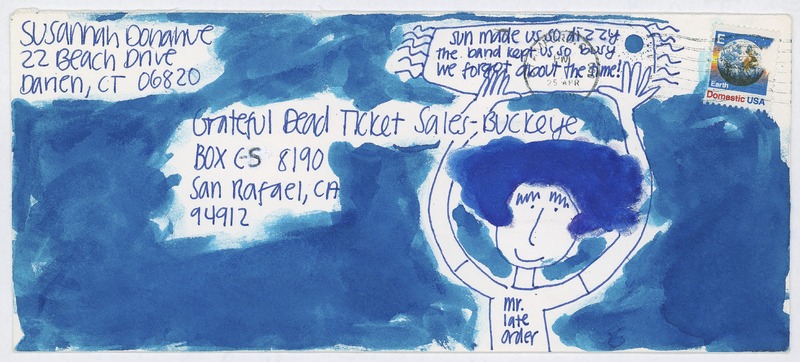 Susannah Donahue
22 Beach Drive
Darien, CT 06820
sun made us so dizzy
the band kept us so busy
we forgot about the time!
PM
25 APR
E
Earth
Domestic USA
Grateful Dead Ticket Sales-Buckeye
BOX CS 8190
San Rafael, CA
94912
mr.
late
order